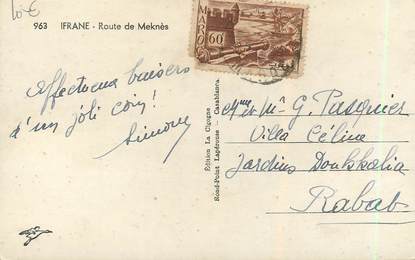 10€
963 IFRANE - Route de Meknès
MAROC
60c
Affectueux baisers
d'un joli coin!
Simone
Edition La Cigogne
Rond-Point Lapérouse - Casablanca.
Mme et Mr G. Pasquier
Villa Céline
Jardins Doukkalia
Rabat